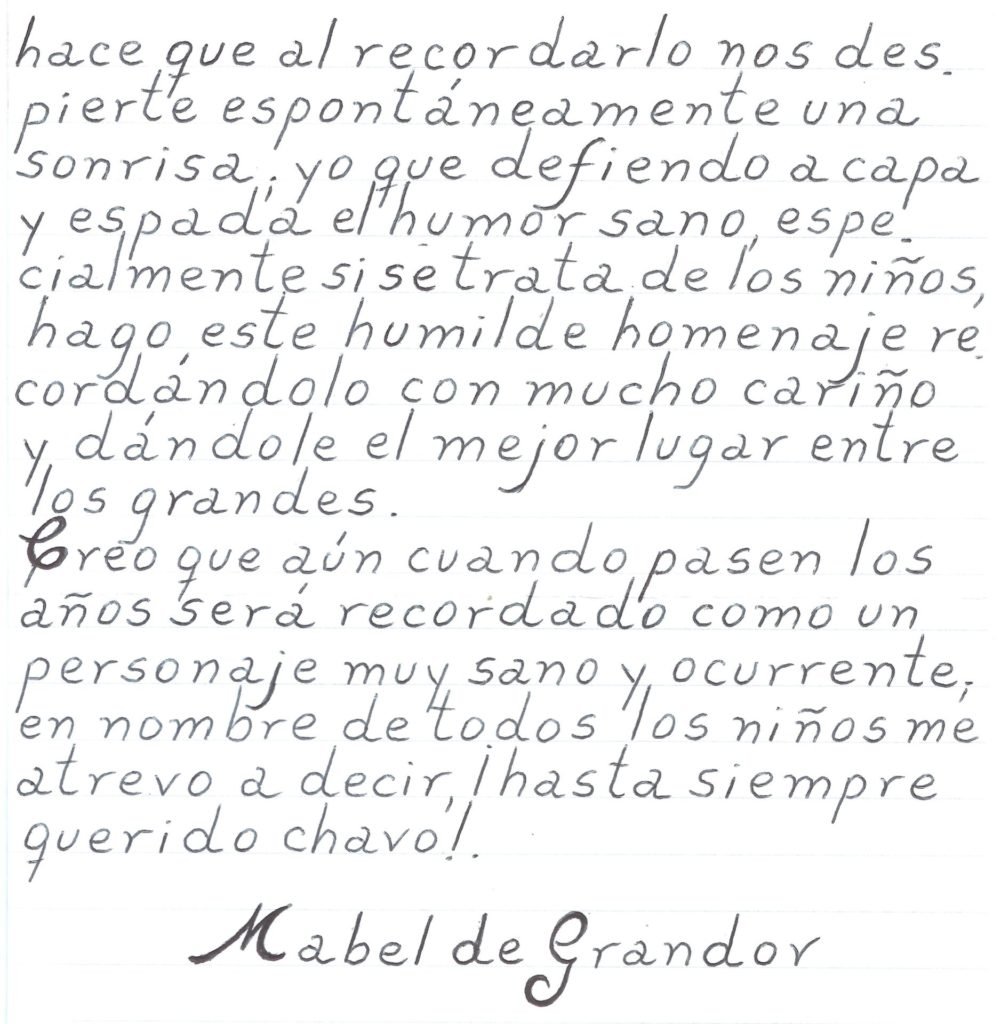 hace que al recordarlo nos des-
pierte espontáneamente una
sonrisa; yo que defiendo a capa
y espada el humor sano, espe-
cialmente si se trata de los niños,
hago este humilde homenaje re-
cordándolo con mucho cariño
y dándole el mejor lugar entre
los grandes.
Creo que aún cuando pasen los
años será recordado como un
personaje muy sano y ocurrente;
en nombre de todos los niños me
atrevo a decir, ¡hasta siempre
querido chavo!.
Mabel de Grandor